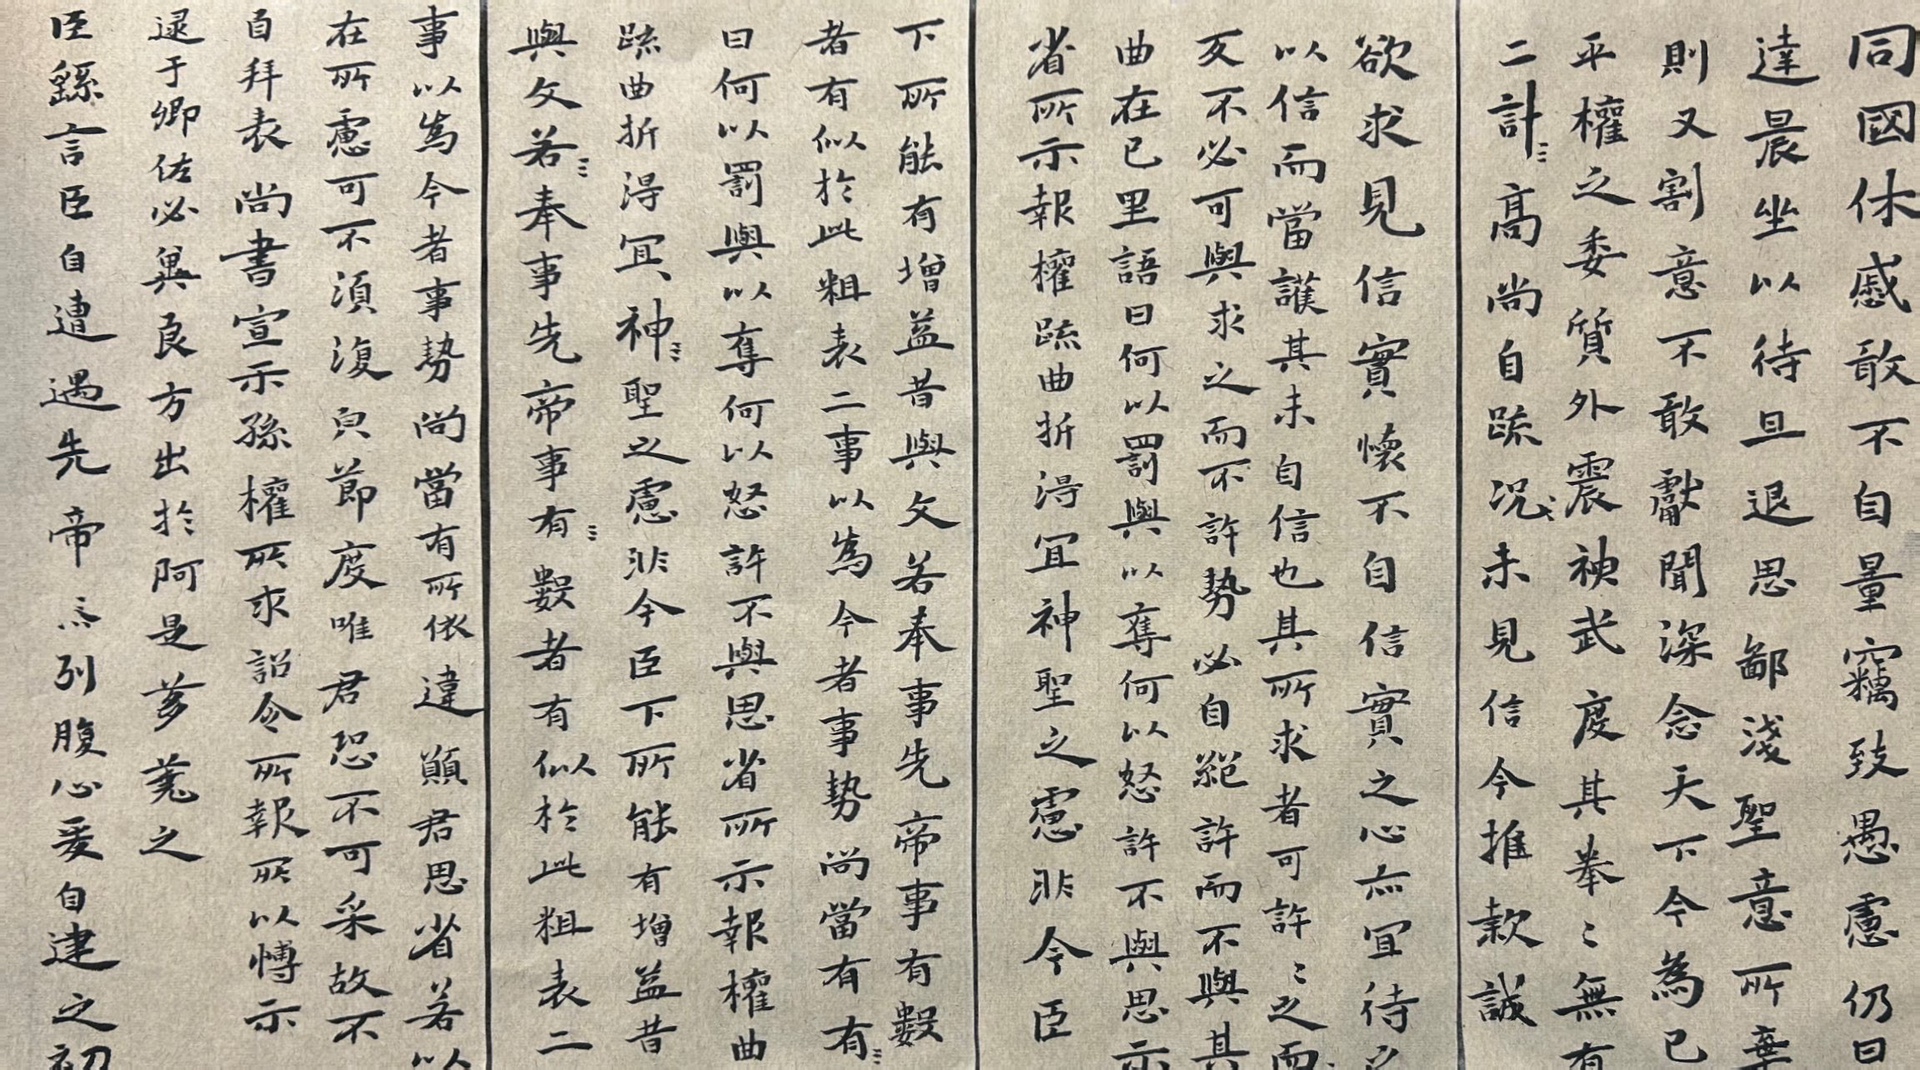 同國休戚敢不自量竊致愚慮仍日
達晨坐以待旦退思鄙淺聖意所棄
則又割意不敢獻聞深念天下今為已
平權之委質外震神武度其拳〻無有
二計高尚自疏況未見信今推款誠
欲求見信實懷不自信實之心亦宜待之
以信而當護其未自信也其所求者可許〻之而
反不必可與求之而不許勢必自絕許而不與其
曲在己里語曰何以罰與以奪何以怒許不與思示
省所示報權疏曲折得宜神聖之慮非今臣
下所能有增益昔與文若奉事先帝事有數
者有似於此粗表二事以為今者事勢尚當有有
曰何以罰與以奪何以怒許不與思省所示報權曲
疏曲折得宜神聖之慮非今臣下所能有增益昔
與文若奉事先帝事有數者有似於此粗表二
事以為今者事勢尚當有所依違願君思省若以
在所慮可不須復㒵節度唯君恐不可采故不
自拜表尚書宣示孫權所求詔令所報所以博示
逮于卿佐必冀良方出於阿是芻蕘之
臣繇言臣自遭遇先帝忝列腹心爰自建之初